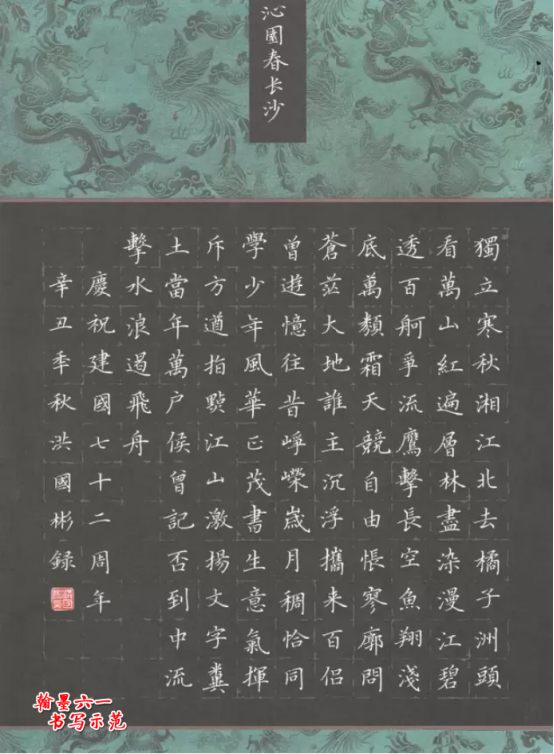 沁園春长沙
獨立寒秋湘江北去橘子洲頭
看萬山紅遍層林盡染漫江碧
透百舸爭流鷹擊長空魚翔淺
底萬類霜天競自由悵寥廓問
蒼茫大地誰主沉浮攜来百侣
曾遊憶往昔崢嶸嵗月稠恰同
學少年風華正茂書生意氣揮
斥方遒指點江山激揚文字糞
土當年萬户侯曾記否到中流
擊水浪遏飛舟
慶祝建國七十二周年
辛丑季秋洪國彬録
翰墨六一
书写示范